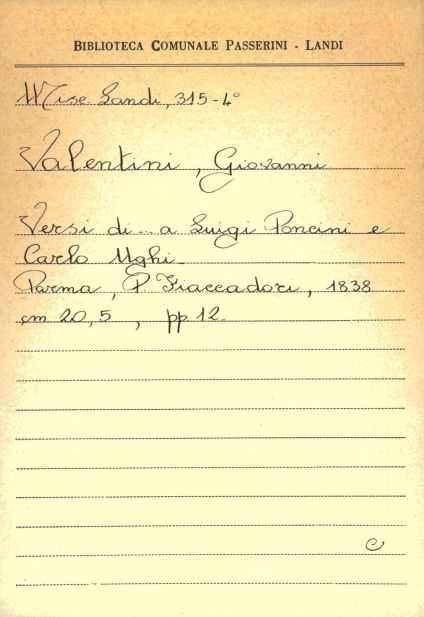 BIBLIOTECA COMUNALE PASSERINI - LANDI
Misc. Landi, 315-4°
Valentini, Giovanni
Versi di... a Luigi Poncini e
Carlo Ughi.
Parma, P. Fiaccadori, 1838
cm 20,5, pp. 12.
C